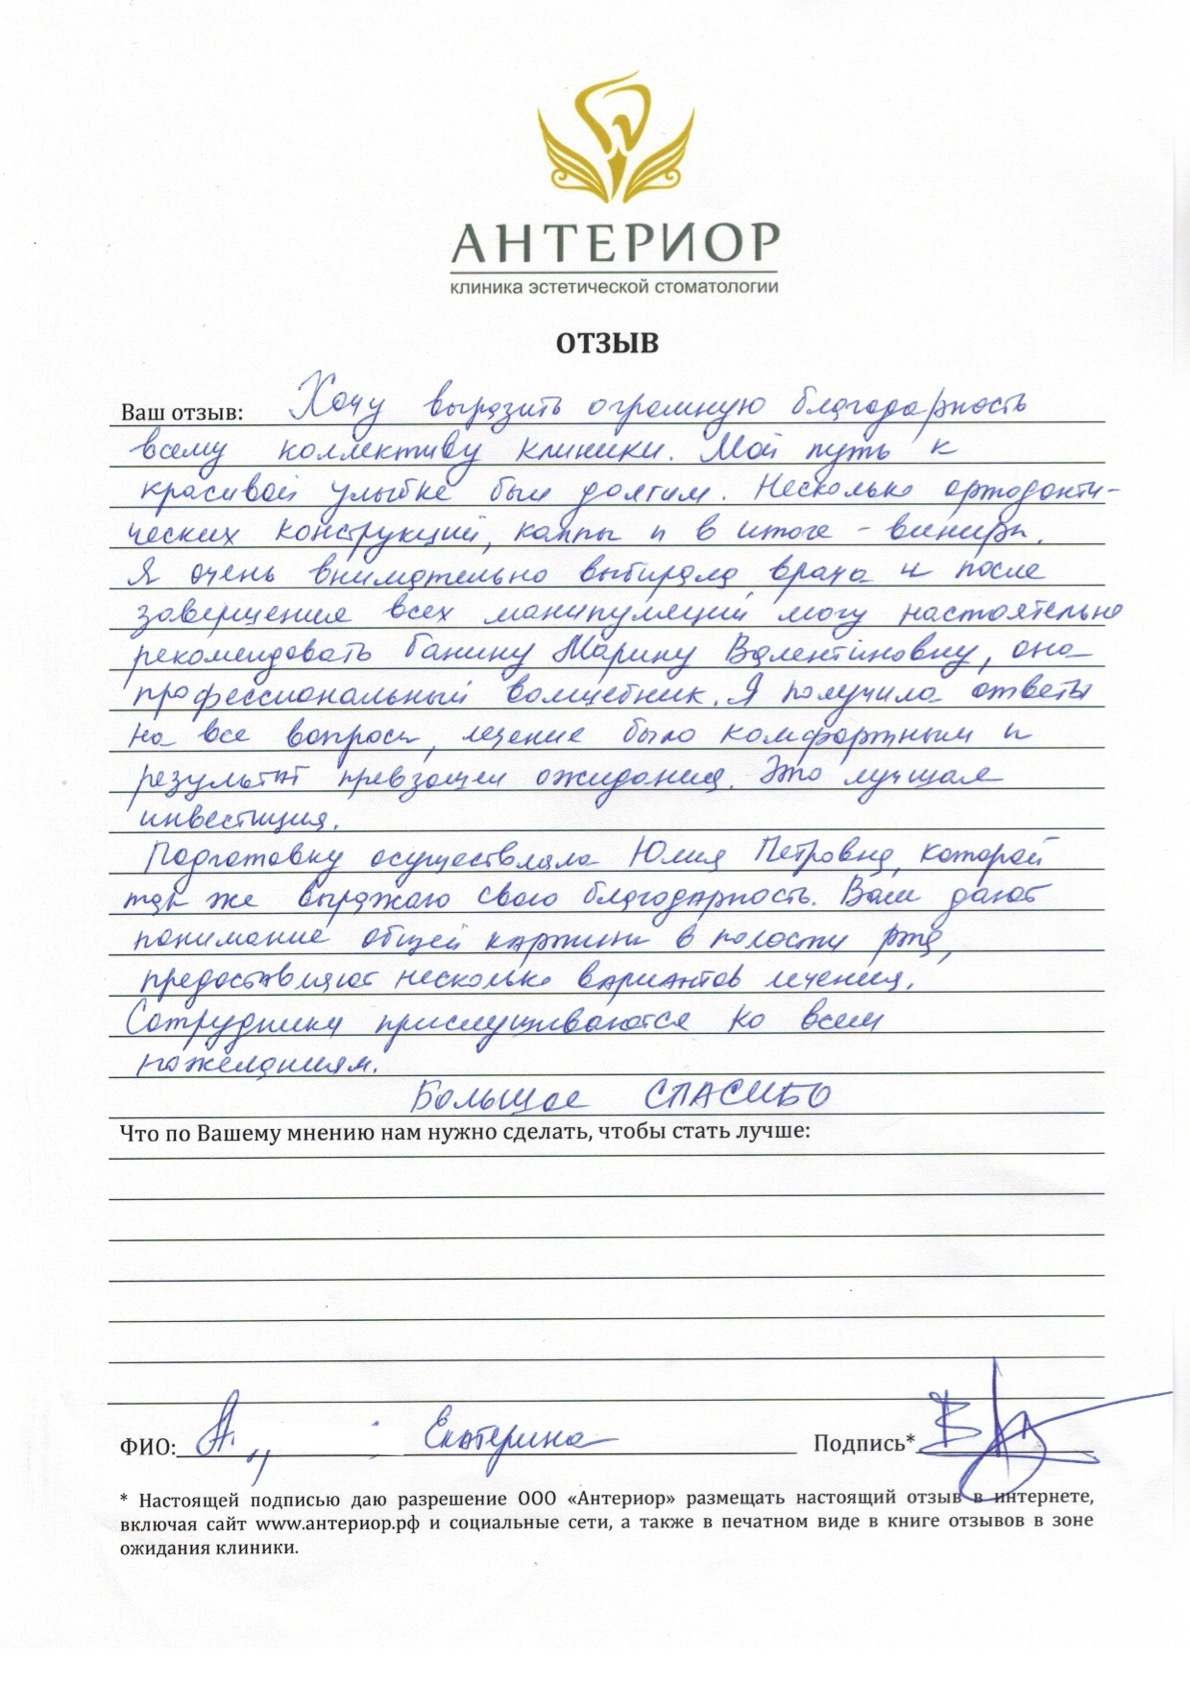 АНТЕРИОР
клиника эстетической стоматологии
ОТЗЫВ
Ваш отзыв: Хочу выразить огромную благодарность
всему коллективу клиники. Мой путь к
красивой улыбке был долгим. Несколько ортодонти-
ческих конструкций, каппы и в итоге - виниры.
Я очень внимательно выбирала врача и после
завершения всех манипуляций могу настоятельно
рекомендовать Банину Марину Валентиновну, она
профессиональный волшебник. Я получила ответы
на все вопросы, лечение было комфортным и
результат превзошел ожидания. Это лучшая
инвестиция.
Подготовку осуществляла Юлия Петровна, которой
так же выражаю свою благодарность. Вам дают
понимание общей картины в полости рта,
предоставляют несколько вариантов лечения.
Сотрудники прислушиваются ко всем
пожеланиям.
Большое СПАСИБО
Что по Вашему мнению нам нужно сделать, чтобы стать лучше:
ФИО: А. Екатерина Подпись*
* Настоящей подписью даю разрешение ООО «Антериор» размещать настоящий отзыв в интернете,
включая сайт www.антериор.рф и социальные сети, а также в печатном виде в книге отзывов в зоне
ожидания клиники.